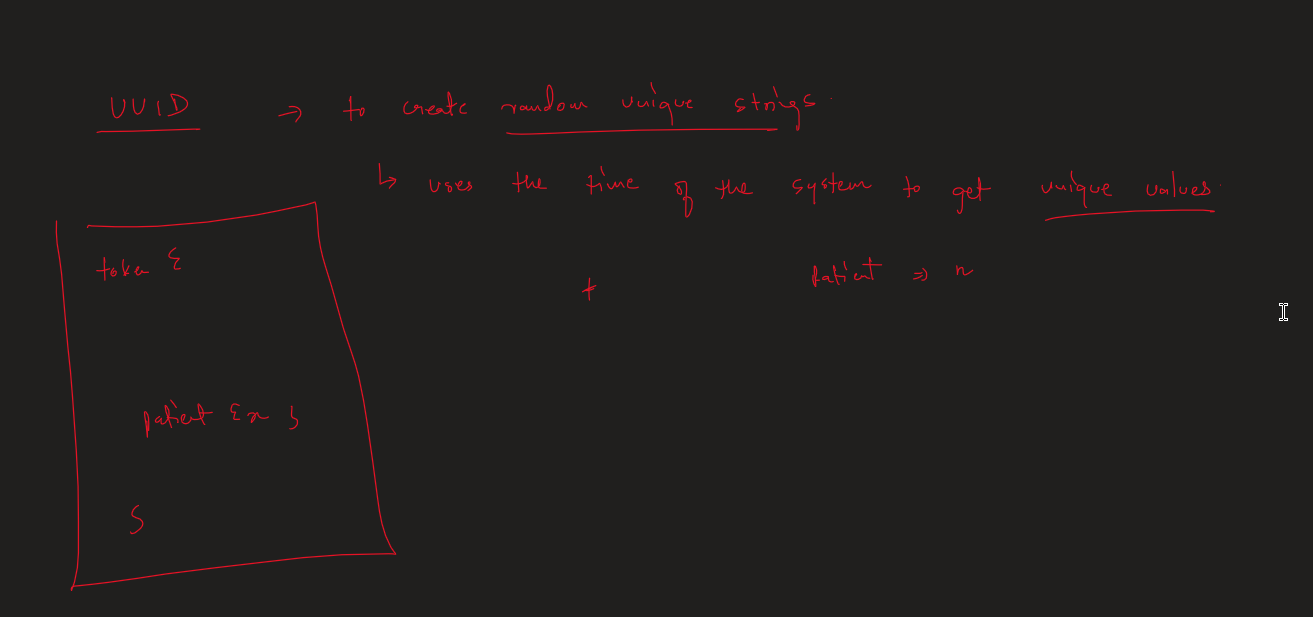 UUID → to create random unique strings.
↳ uses the time of the system to get unique values.
token {
patient ⇒ n
patient { n }
}